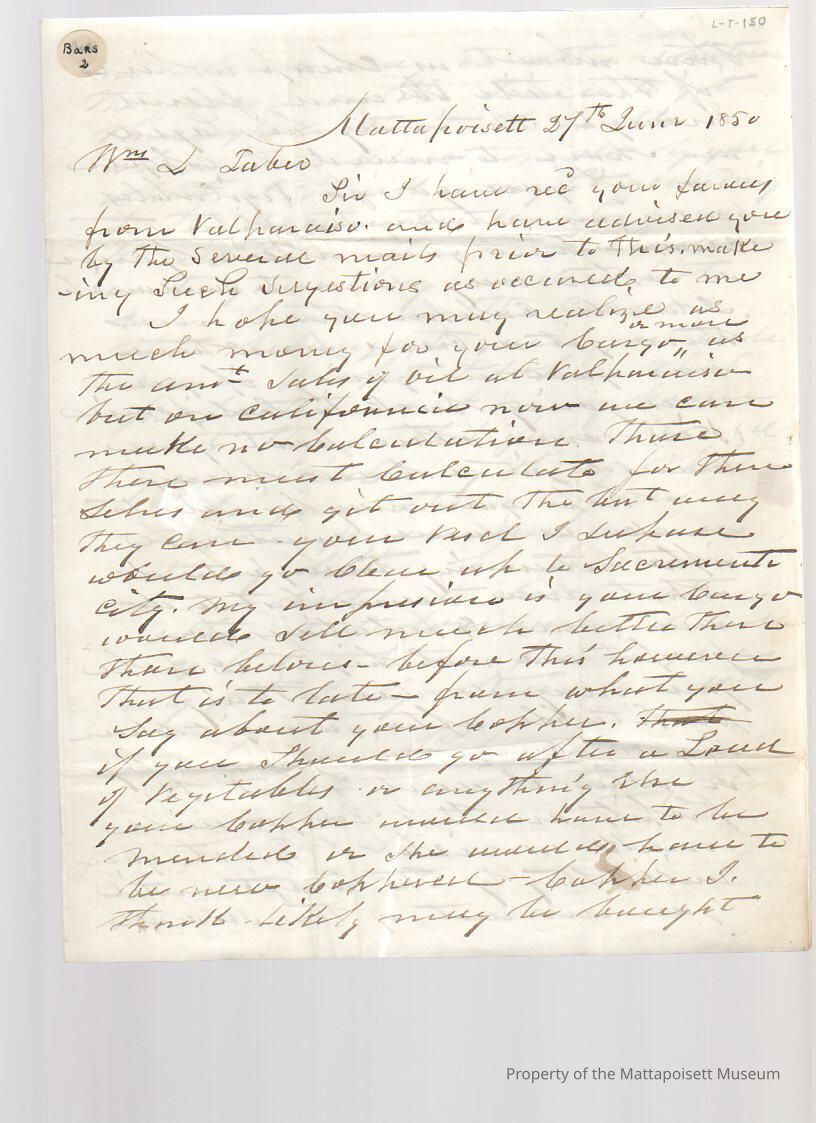 L-T-150
Bars
2
Mattapoisett 27th June 1850
Wm L Taber
Sir I have recd your favours
from Valparaiso. and have advised you
by the several mails prior to this. make
-ing Such Sugestions as occured to me
I hope you may realize as
much money for your Cargo or more as
the amt Sales of oil at Valparaiso
but on California now we can
make no Calculation. Those
there must Calculate for them
selves and git out the best way
they can - your vesel I supose
would go Clear up to Sacremento
city. My impresion is your Cargo
would sell much better there
than below - before this however
that is to late - from what you
Say about your Copper. That
if you Should go after a Load
of vegitables or anything Else
your Copper would have to be
mended or she would have to
be new Coppered - Copper I.
think likely may be bought
Property of the Mattapoisett Museum